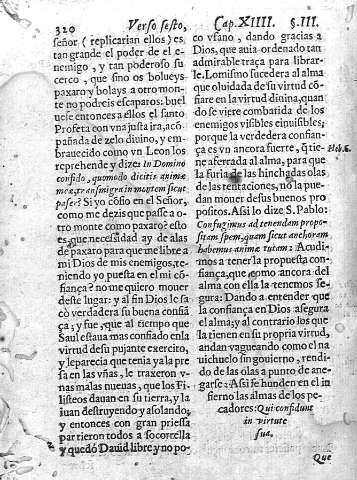 320
Verso sesto,
Cap. XIIII. §. III.
señor (replicarian ellos) es,
tan grande el poder de el e-
nemigo, y tan poderoso su
cerco, que sino os bolueys
paxaro y bolays a otro mon-
te no podreis escaparos: buel
uese entonces a ellos el santo
Profeta con vna justa ira, acõ
pañada de zelo diuino, y em-
brauecido como vn Leon los
reprehende y dize: In Domino
confido, quomodo dicitis animæ
meæ, transmigra in montem sicut
passer? Si yo cõfio en el Señor,
como me dezis que passe a o-
tro monte como paxaro? esto
es, que necessidad ay de alas
de paxaro para que me libre a
mi Dios de mis enemigos, te-
niendo yo puesta en el mi cõ-
fiança? no me quiero mouer
deste lugar: y al fin Dios le sa
cò verdadera su buena confiã
ça; y fue, que al tiempo que
Saul estaua mas confiado en la
virtud de su pujante exercito,
y le parecia que tenia ya la pre
sa en las vñas, le traxeron v-
nas malas nueuas, que los Fi-
listeos dauan en su tierra, y la
iuan destruyendo y asolando,
y entonces con gran priessa
partieron todos a socorrella
y quedò Dauid libre y no po-
co vfano, dando gracias a
Dios, que auia ordenado tan
admirable traça para librar-
le. Lo mismo sucedera al alma
que oluidada de su virtud cõ-
fiare en la virtud diuina, quan
do se viere combatida de los
enemigos visibles e inuisibles;
porque la verdedera confian-
ça es vn ancora fuerte, q̃ tie-
ne aferrada al alma, para que
la furia de las hinchadas olas
de las tentaciones, no la pue-
dan mouer de sus buenos pro
positos. Assi lo dize S. Pablo:
Confugimus ad tenendam propo-
sitam spem, quam sicut anchoram
habemus animæ tutam: Acudi-
mos a tener la propuesta con-
fiança, que como ancora del
alma con ella la tenemos se-
gura: Dando a entender que
la confiança en Dios assegura
el alma; y al contrario los que
la tienen en su propria virtud,
andan vagueando como el na
uichuelo sin gouierno, rendi-
do de las olas a punto de ane-
garse: Assi se hunden en el in
fierno las almas de los pe-
cadores: Qui confidunt
in virtute
sua.
Heb. 6.
Que